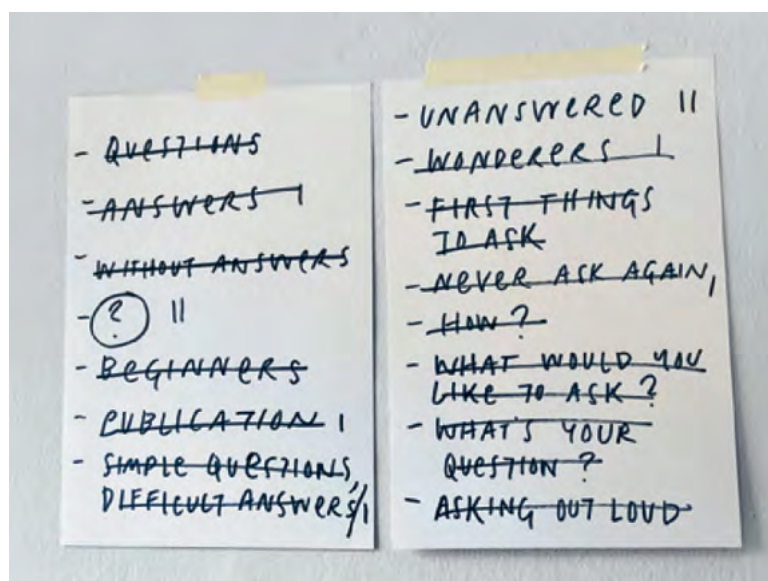 - QUESTIONS
- ANSWERS I
- WITHOUT ANSWERS
- ? II
- BEGINNERS
- PUBLICATION I
- SIMPLE QUESTIONS,
DIFFICULT ANSWERS/I
- UNANSWERED II
- WONDERERS I
- FIRST THINGS
TO ASK
- NEVER ASK AGAIN I
- HOW?
- WHAT WOULD YOU
LIKE TO ASK?
- WHAT'S YOUR
QUESTION?
- ASKING OUT LOUD